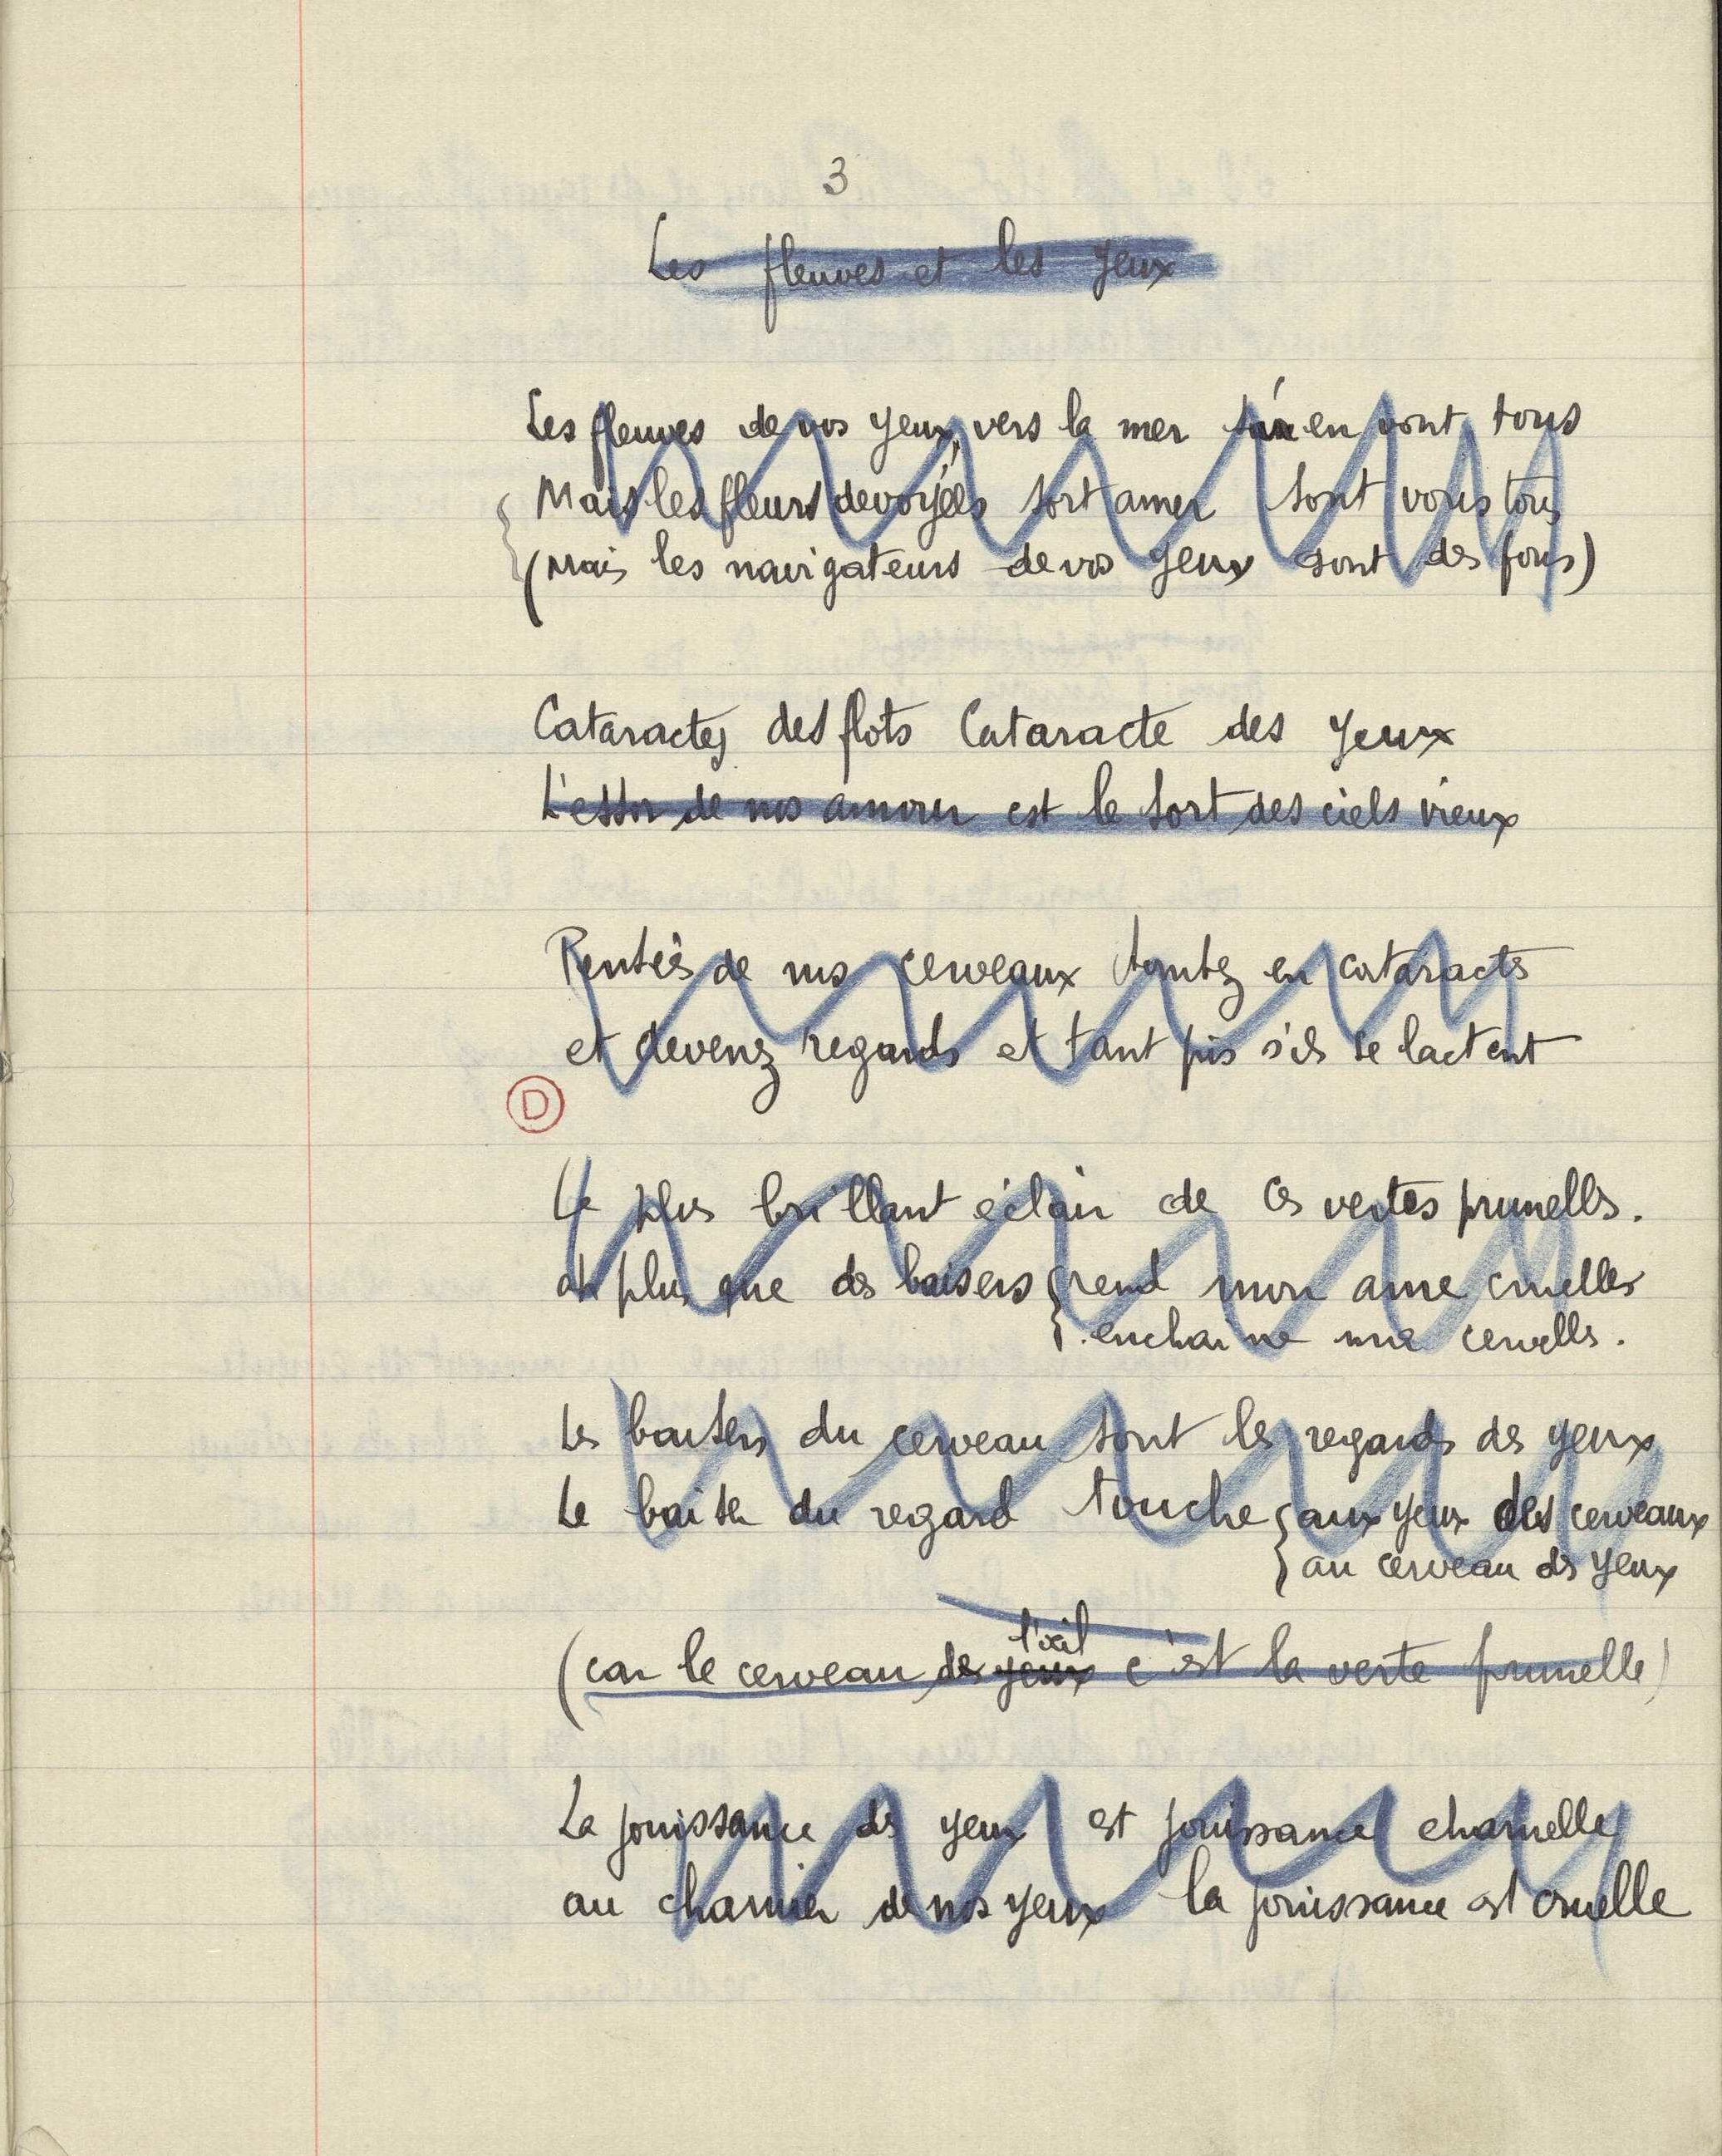 3
Les fleuves et les yeux
Les fleuves de vos yeux, vers la mer s'en vont tous
Mais les fleurs devoyées sort amer sont vous tous
(Mais les navigateurs de vos yeux sont des fous)
Cataractes des flots Cataracte des yeux
L'essor de nos amours est le sort des ciels vieux
Pensées de nos cerveaux tombez en cataractes
et devenez regards et tant pis s'ils se lactent
D
Le plus brillant éclair de ces vertes prunelles.
ah plus que des baisers { rend mon ame cruelle
enchaine ma cervelle.
Les baisers du cerveau sont les regards des yeux
Le baiser du regard touche { aux yeux des cerveaux
au cerveau des yeux
l'œil
(car le cerveau de yeux c'est la verte prunelle)
La jouissance des yeux est jouissance charnelle
au charnier de nos yeux la jouissance est cruelle